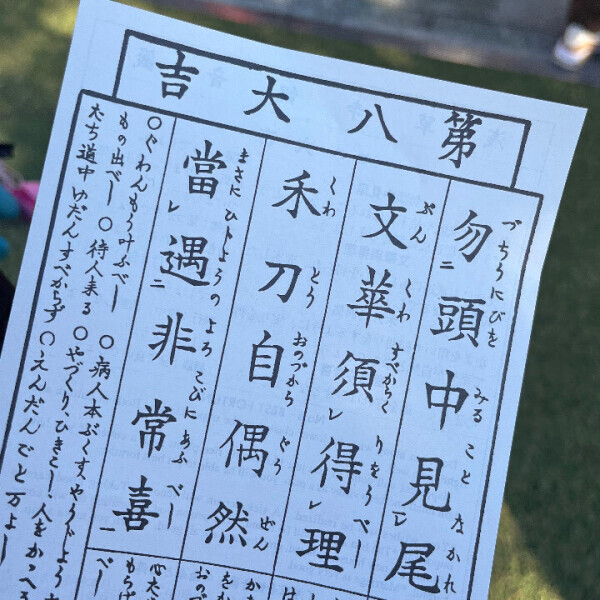 第八大吉
勿頭中見尾
づちうにびを みること なかれ
文華須得理
ぶんくわすべからくりをうべし
禾刀自偶然
くわとうおのづからぐうぜん
當遇非常喜
まさにひじようのよろこびにあふべし
○ぐわんもう叶ふべし ○病人本ぶくす、やうじよう
もの出べし ○待人来る ○やづくり、ひきこし、人をかゝへる
たち道中ゆだんすべからず ○えんだんごと万よし